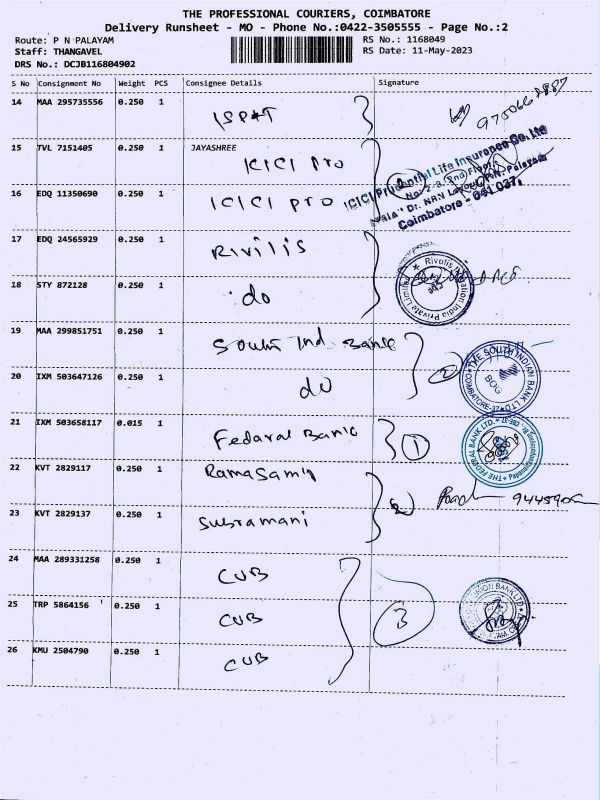 THE PROFESSIONAL COURIERS, COIMBATORE
Delivery Runsheet - MO - Phone No.:0422-3505555 - Page No.:2
Route: P N PALAYAM
RS No.: 1168049
Staff: THANGAVEL
RS Date: 11-May-2023
DRS No.: DCJB116804902
S No Consignment No Weight PCS Consignee Details Signature
14 MAA 295735556 0.250 1
15 TVL 7151405 0.250 1 JAYASHREE
ICICI Pro
16 EDQ 11350690 0.250 1 ICICI Pro
ICICI Prudential Life Insurance Co. Ltd
Coimbatore - 641 037.
17 EDQ 24565929 0.250 1 Rivilis
18 STY 872128 0.250 1 do
Rivulis Irrigation India Private Limited
19 MAA 299851751 0.250 1 South Ind Bank
20 IXM 503647126 0.250 1 do
2
THE SOUTH INDIAN BANK LTD.
COIMBATORE-37
BOG
21 IXM 503658117 0.015 1 Federal Bank 1
THE FEDERAL BANK LTD.
22 KVT 2829117 0.250 1 Ramasamy
23 KVT 2829137 0.250 1 Subramani
2
24 MAA 289331258 0.250 1 CUB
25 TRP 5864156 0.250 1 CUB
3
UNION BANK LTD
26 KMU 2504790 0.250 1 CUB